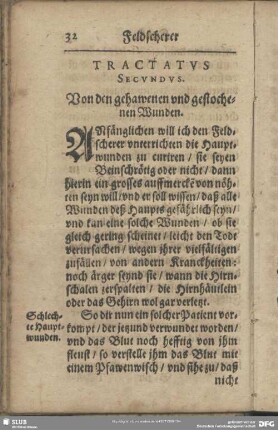 32
Feldscherer
TRACTATVS
SECVNDVS.
Von den gehawenen vnd gestoche-
nen Wunden.
ANfänglichen will ich den Feld-
scherer vnterrichten die Haupt-
wunden zu curiren / sie seyen
Beinschrötig oder nicht / dann
hierin ein grosses auffmercke͂ von nöh-
ten seyn will / vnd er soll wissen / daß alle
Wunden deß Haupts gefährlich seyn /
vnd kan eine solche Wunden / ob sie
gleich gering scheinet / leicht den Todt
verursachen / wegen jhrer vielfältigen
zufällen / von andern Kranckheiten:
noch ärger seynd sie / wann die Hirn-
schalen zerspalten / die Hirnhäutlein
oder das Gehirn wol gar verletzt.
Schlech-
te Haupt-
wunden.
So dir nun ein solcher Patient vor-
kompt / der jezund verwundet worden /
vnd das Blut noch hefftig von jhm
fleust / so verstelle jhm das Blut mit
einem Pfawenwisch / vnd sihe zu / daß
nicht
SLUB